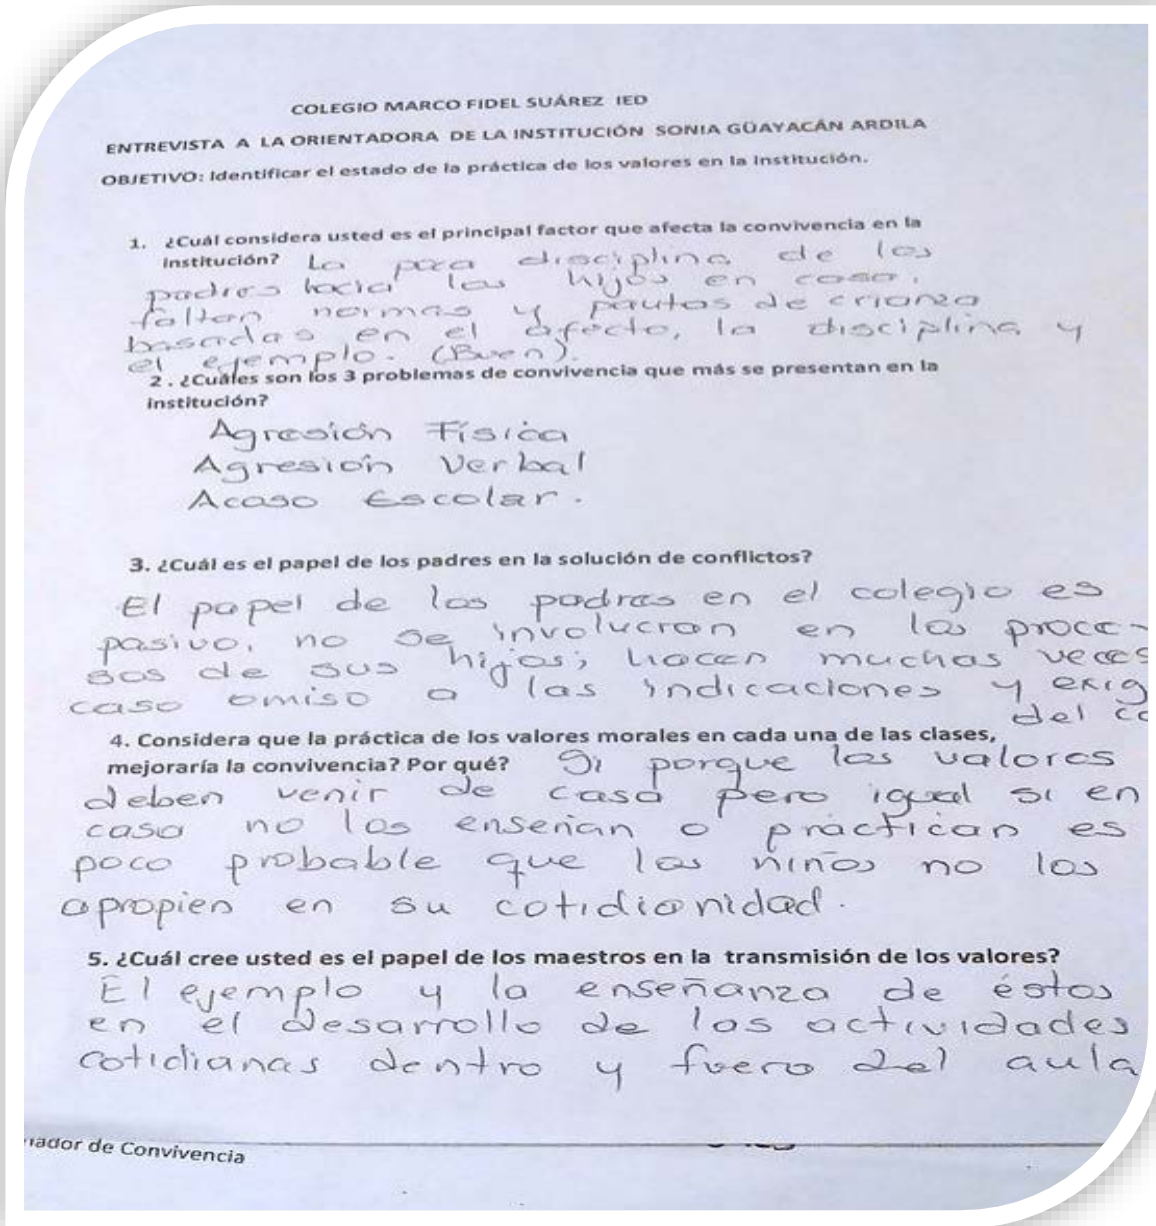 COLEGIO MARCO FIDEL SUÁREZ IED
ENTREVISTA A LA ORIENTADORA DE LA INSTITUCIÓN SONIA GÜAYACÁN ARDILA
OBJETIVO: Identificar el estado de la práctica de los valores en la Institución.
1. ¿Cuál considera usted es el principal factor que afecta la convivencia en la
institución? La poca disciplina de los
padres hacia los hijos en casa,
faltan normas y pautas de crianza
basadas en el afecto, la disciplina y
el ejemplo. (Buen).
2 . ¿Cuáles son los 3 problemas de convivencia que más se presentan en la
institución?
Agresión Física
Agresión Verbal
Acaso Escolar.
3. ¿Cuál es el papel de los padres en la solución de conflictos?
El papel de los padres en el colegio es
pasivo, no se involucran en los proce-
sos de sus hijos; hacen muchas veces
caso omiso a las indicaciones y exig
del co
4. Considera que la práctica de los valores morales en cada una de las clases,
mejoraría la convivencia? Por qué? Si porque los valores
deben venir de casa pero igual si en
casa no los enseñan o practican es
poco probable que los niños no los
apropien en su cotidianidad.
5. ¿Cuál cree usted es el papel de los maestros en la transmisión de los valores?
El ejemplo y la enseñanza de éstos
en el desarrollo de las actividades
cotidianas dentro y fuera del aula
nador de Convivencia